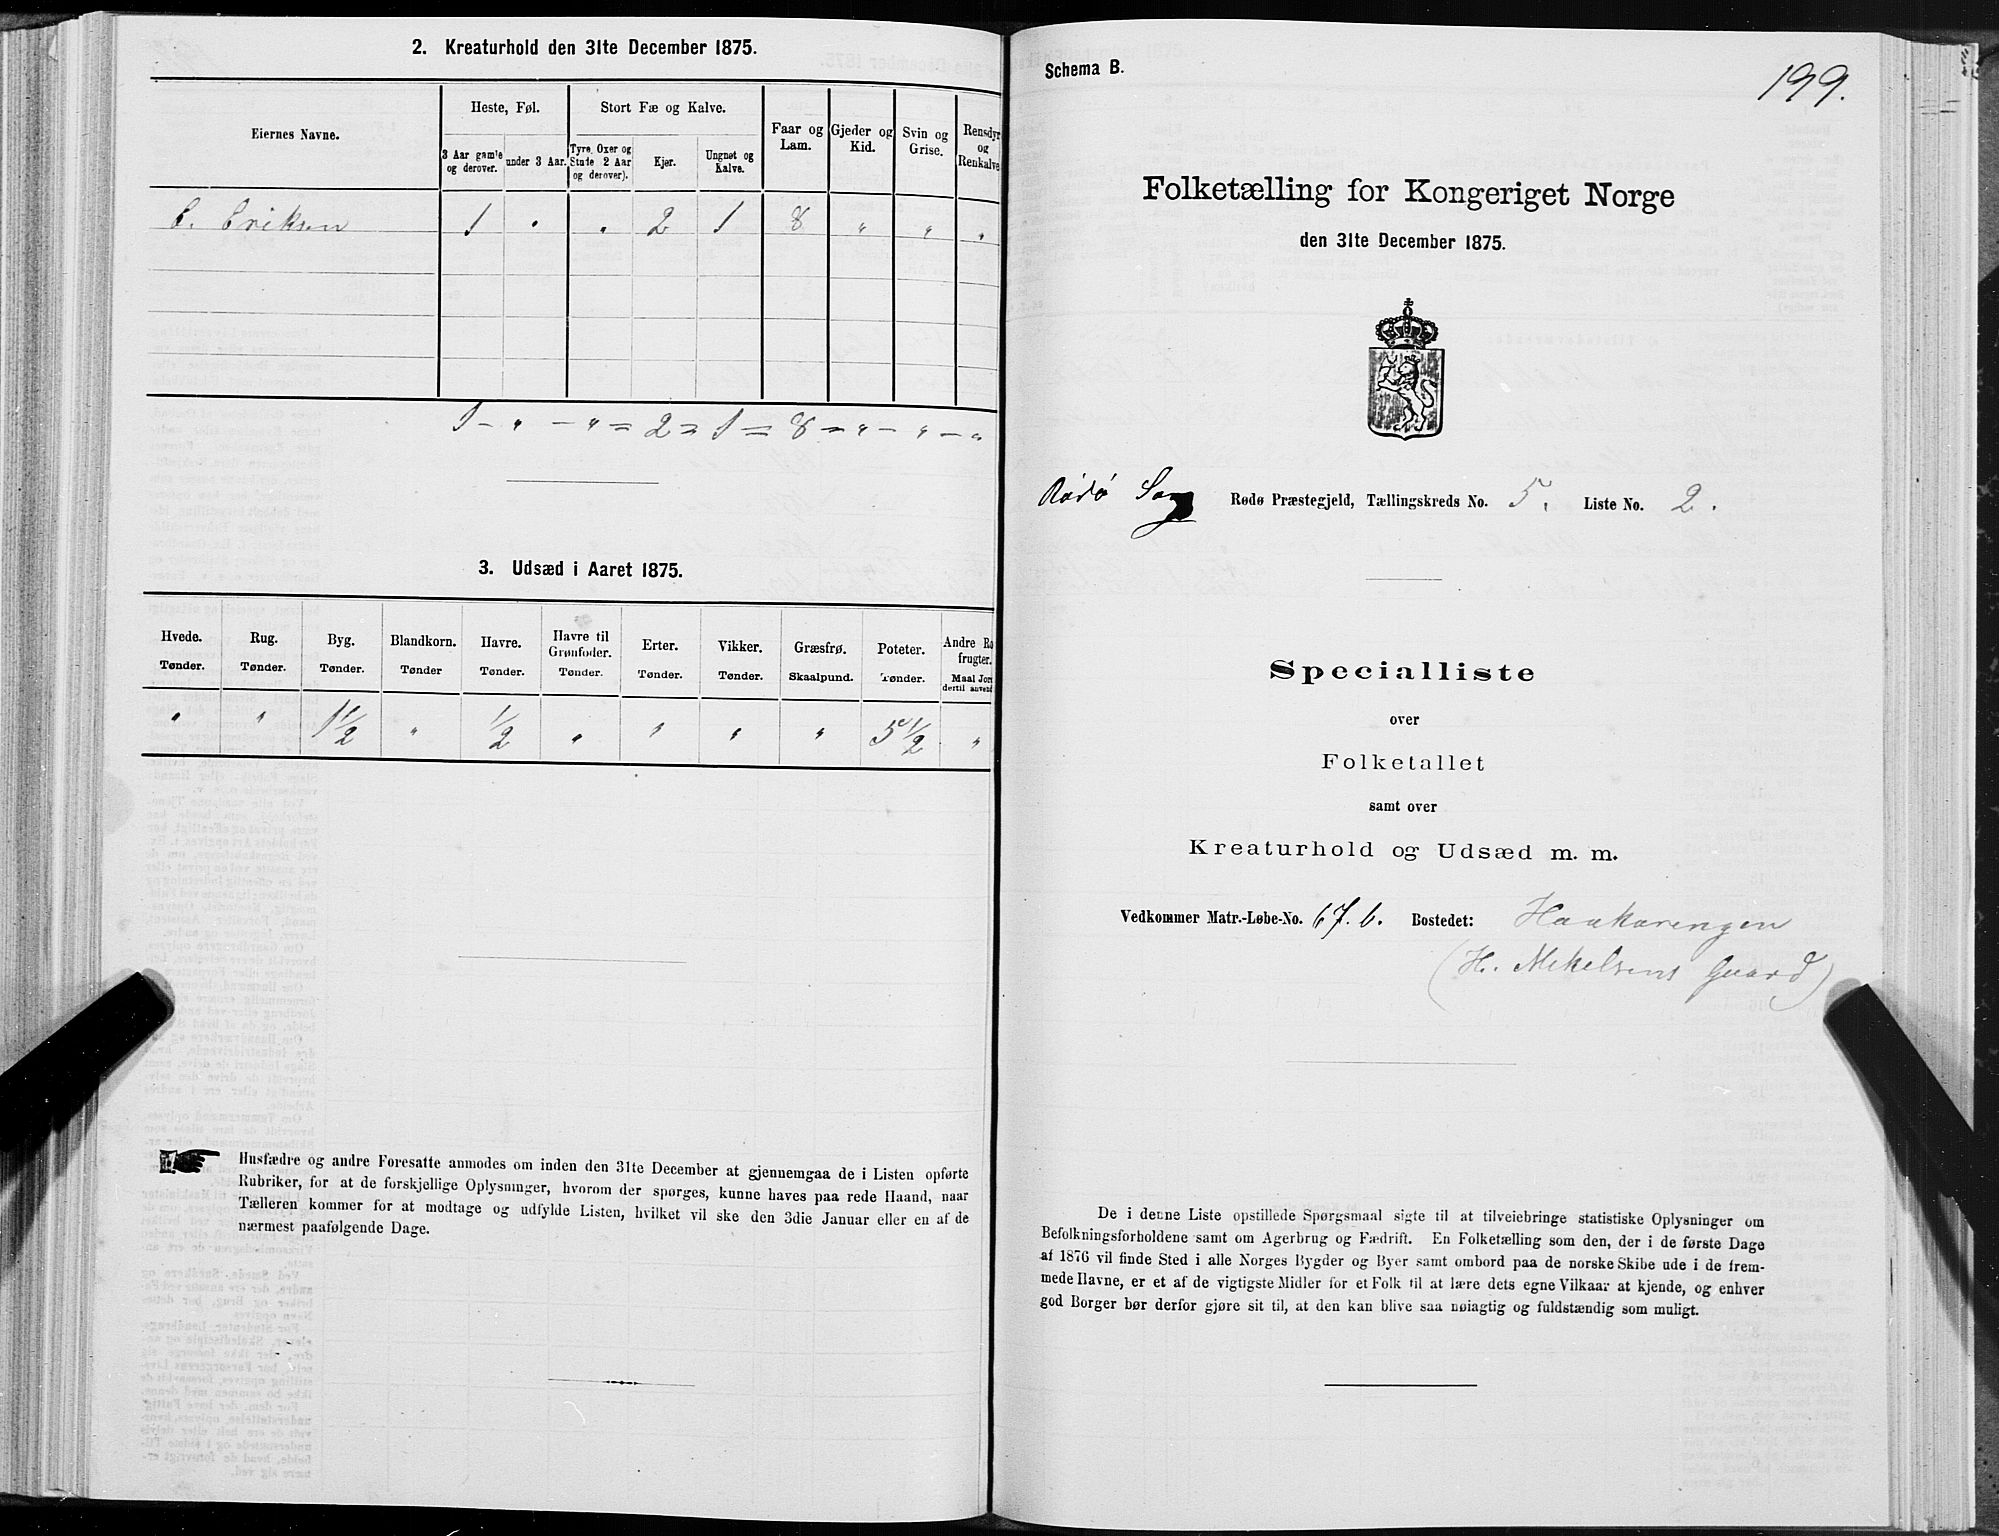 2. Kreaturhold den 31te December 1875.
Eiernes Navne.
Heste, Føl.
Stort Fæ og Kalve.
Faar og Lam.
Gjeder og Kid.
Svin og Grise.
Rensdyr og Renkalve
3 Aar gamle og derover.
under 3 Aar.
Tyre, Oxer og Stude 2 Aar og derover).
Kjør.
Ungnøt og Kalve.
E. Eriksen 1 " " 2 1 8 " " "
1 - " - " = 2 = 1 = 8 = " - " - "
3. Udsæd i Aaret 1875.
Hvede. Tønder.
Rug. Tønder.
Byg. Tønder.
Blandkorn. Tønder
Havre. Tønder.
Havre til Grønfoder. Tønder.
Erter. Tønder.
Vikker. Tønder.
Græsfrø. Skaalpund.
Poteter. Tønder.
Andre Ro frugter. Maal Jor dertil anvend
" " 1 1/2 " 1/2 " " " " 5 1/2 "
Husfædre og andre Foresatte anmodes om inden den 31te December at gjennemgaa de i Listen opførte
Rubriker, for at de forskjellige Oplysninger, hvorom der spørges, kunne haves paa rede Haand, naar
Tælleren kommer for at modtage og udfylde Listen, hvilket vil ske den 3die Januar eller en af de
nærmest paafølgende Dage.
Schema B.
199.
Folketælling for Kongeriget Norge
den 31te December 1875.
Rødø Sog Rødø Præstegjeld, Tællingskreds No. 5. Liste No. 2.
Specialliste
over
Folketallet
samt over
Kreaturhold og Udsæd m. m.
Vedkommer Matr.-Løbe-No. 67.b. Bostedet: Haakarengen
(H. Mikelsens Gaard)
De i denne Liste opstillede Spørgsmaal sigte til at tilveiebringe statistiske Oplysninger om
Befolkningsforholdene samt om Agerbrug og Fædrift. En Folketælling som den, der i de første Dage
af 1876 vil finde Sted i alle Norges Bygder og Byer samt ombord paa de norske Skibe ude i de frem-
mede Havne, er et af de vigtigste Midler for et Folk til at lære dets egne Vilkaar at kjende, og enhver
god Borger bør derfor gjøre sit til, at den kan blive saa nøiagtig og fuldstændig som muligt.